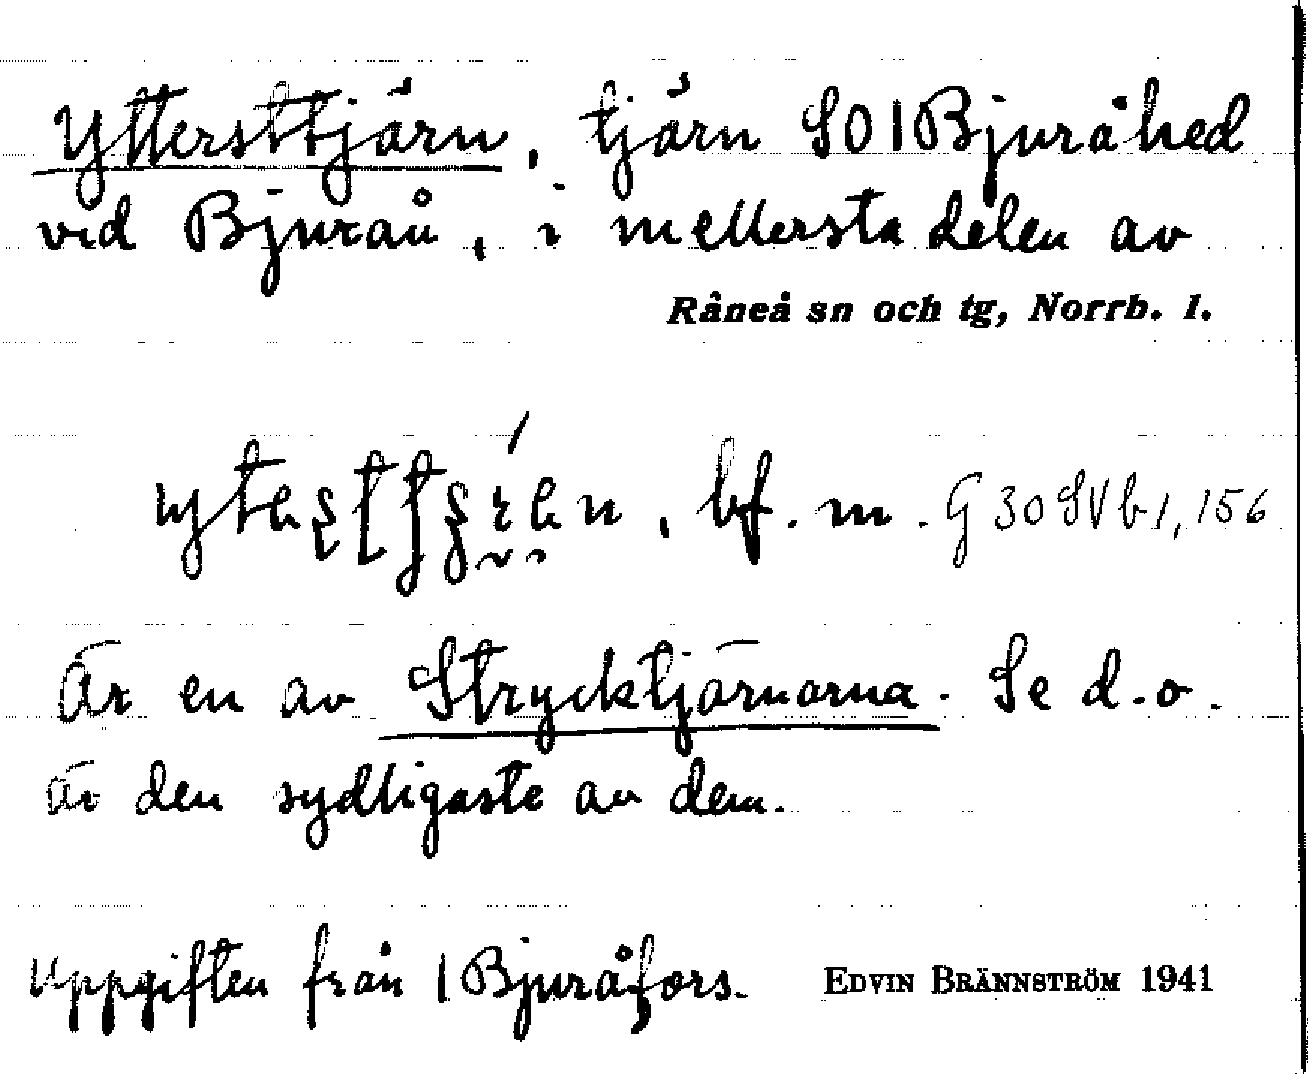 Yttersttjärn, tjärn SO 1 Bjuråhed
vid Bjuraå, i mellersta delen av
Råneå sn och tg, Norrb. l.
bf. m. G 30 SV b 1, 156
Är en av Strycktjärnarna. Se d.o.
Är den sydligaste av dem.
Uppgiften från 1 Bjuråfors.
EDVIN BRÄNNSTRÖM 1941